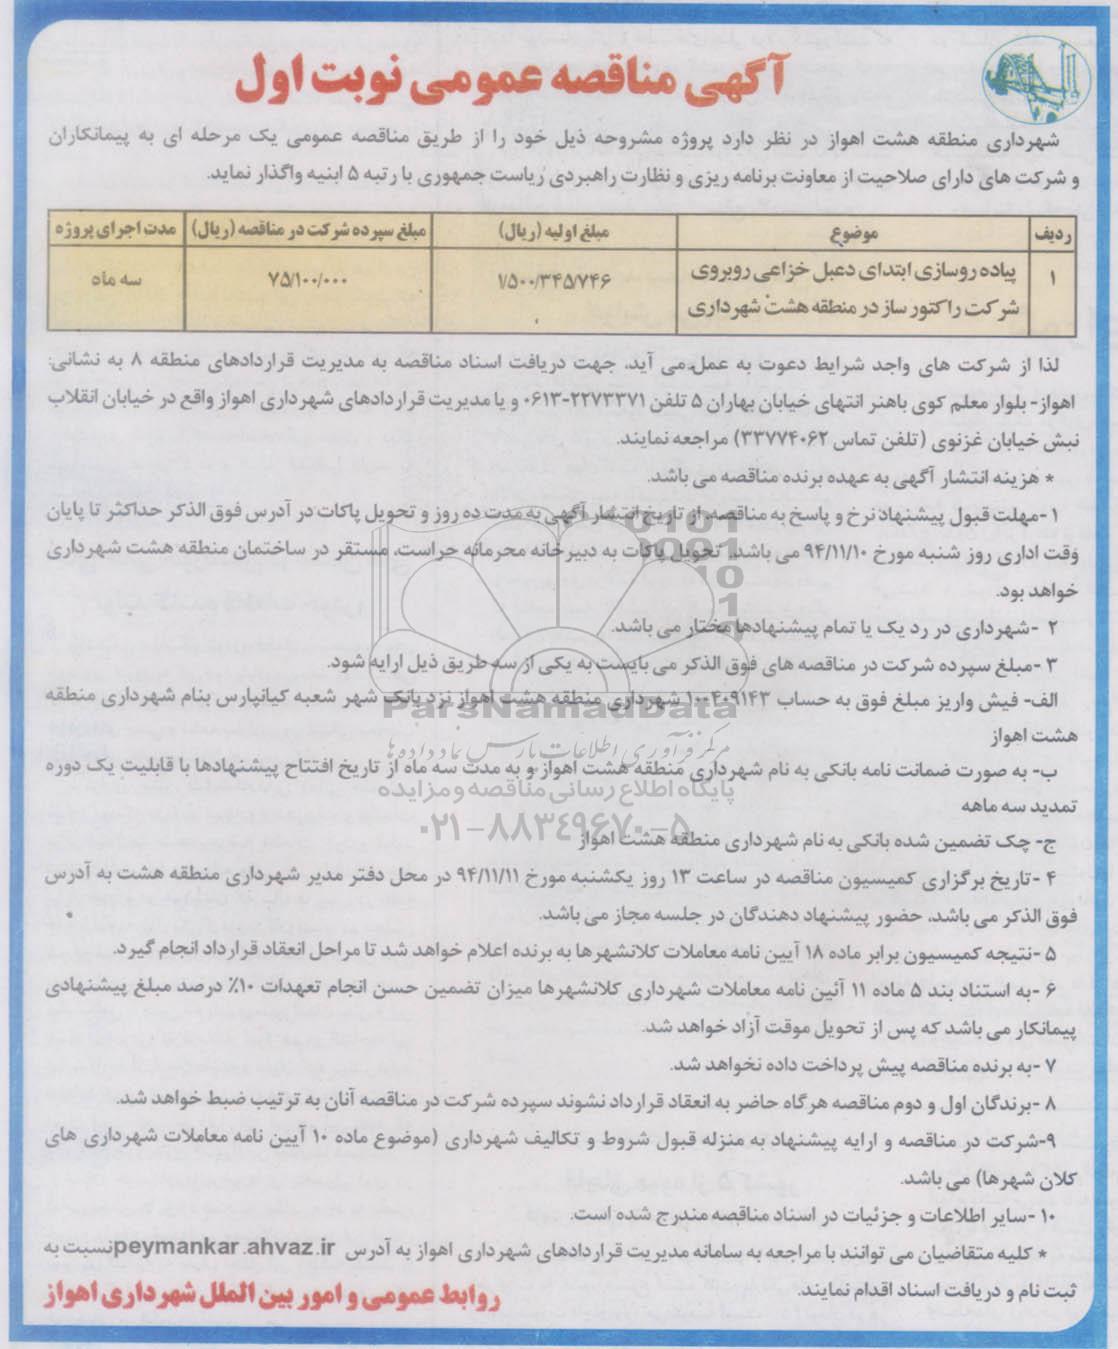 آگهی مناقصه عمومی نوبت اول
شهرداری منطقه هشت اهواز در نظر دارد پروژه مشروحه ذیل خود را از طریق مناقصه عمومی یک مرحله ای به پیمانکاران
و شرکت های دارای صلاحیت از معاونت برنامه ریزی و نظارت راهبردی ریاست جمهوری با رتبه ۵ ابنیه واگذار نماید.
ردیف موضوع مبلغ اولیه (ریال) مبلغ سپرده شرکت در مناقصه (ریال) مدت اجرای پروژه
۱ پیاده روسازی ابتدای دعبل خزاعی روبروی ۱/۵۰۰/۳۴۵/۷۴۶ ۷۵/۱۰۰/۰۰۰ سه ماه
شرکت راکتور ساز در منطقه هشت شهرداری
لذا از شرکت های واجد شرایط دعوت به عمل می آید، جهت دریافت اسناد مناقصه به مدیریت قراردادهای منطقه ۸ به نشانی:
اهواز- بلوار معلم کوی باهنر انتهای خیابان بهاران ۵ تلفن ۲۲۷۳۳۷۱-۰۶۱۳ و یا مدیریت قراردادهای شهرداری اهواز واقع در خیابان انقلاب
نبش خیابان غزنوی (تلفن تماس ۳۳۷۷۴۰۶۲) مراجعه نمایند.
* هزینه انتشار آگهی به عهده برنده مناقصه می باشد.
۱-مهلت قبول پیشنهاد نرخ و پاسخ به مناقصه، از تاریخ انتشار آگهی به مدت ده روز و تحویل پاکات در آدرس فوق الذکر حداکثر تا پایان
وقت اداری روز شنبه مورخ ۹۴/۱۱/۱۰ می باشد. تحویل پاکات به دبیرخانه محرمانه حراست، مستقر در ساختمان منطقه هشت شهرداری
خواهد بود.
۲ -شهرداری در رد یک یا تمام پیشنهادها مختار می باشد.
۳ -مبلغ سپرده شرکت در مناقصه های فوق الذکر می بایست به یکی از سه طریق ذیل ارایه شود.
الف- فیش واریز مبلغ فوق به حساب ۱۰۰۴۰۹۱۴۳ شهرداری منطقه هشت اهواز نزد بانک شهر شعبه کیانپارس بنام شهرداری منطقه
هشت اهواز
ParsNamadData
مرکز فرآوری اطلاعات پارس نماد داده ها
ب- به صورت ضمانت نامه بانکی به نام شهرداری منطقه هشت اهواز و به مدت سه ماه از تاریخ افتتاح پیشنهادها با قابلیت یک دوره
تمدید سه ماهه
پایگاه اطلاع رسانی مناقصه و مزایده
۰۲۱-۸۸۳۴۹۶۷۰-۵
ج- چک تضمین شده بانکی به نام شهرداری منطقه هشت اهواز
۴ -تاریخ برگزاری کمیسیون مناقصه در ساعت ۱۳ روز یکشنبه مورخ ۹۴/۱۱/۱۱ در محل دفتر مدیر شهرداری منطقه هشت به آدرس
فوق الذکر می باشد، حضور پیشنهاد دهندگان در جلسه مجاز می باشد.
۵ -نتیجه کمیسیون برابر ماده ۱۸ آیین نامه معاملات کلانشهرها به برنده اعلام خواهد شد تا مراحل انعقاد قرارداد انجام گیرد.
۶ -به استناد بند ۵ ماده ۱۱ آئین نامه معاملات شهرداری کلانشهرها میزان تضمین حسن انجام تعهدات ۱۰٪ درصد مبلغ پیشنهادی
پیمانکار می باشد که پس از تحویل موقت آزاد خواهد شد.
۷ -به برنده مناقصه پیش پرداخت داده نخواهد شد.
۸ -برندگان اول و دوم مناقصه هرگاه حاضر به انعقاد قرارداد نشوند سپرده شرکت در مناقصه آنان به ترتیب ضبط خواهد شد.
۹-شرکت در مناقصه و ارایه پیشنهاد به منزله قبول شروط و تکالیف شهرداری (موضوع ماده ۱۰ آیین نامه معاملات شهرداری های
کلان شهرها) می باشد.
۱۰ -سایر اطلاعات و جزئیات در اسناد مناقصه مندرج شده است.
* کلیه متقاضیان می توانند با مراجعه به سامانه مدیریت قراردادهای شهرداری اهواز به آدرس peymankar.ahvaz.ir نسبت به
ثبت نام و دریافت اسناد اقدام نمایند.
روابط عمومی و امور بین الملل شهرداری اهواز